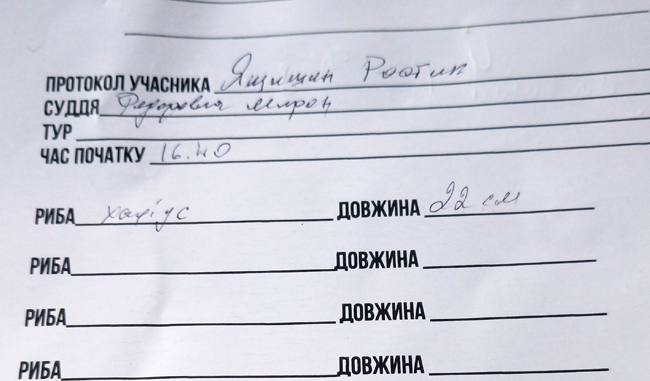 ПРОТОКОЛ УЧАСНИКА Ящишин Ростик
СУДДЯ Федорович Мирон
ТУР
ЧАС ПОЧАТКУ 16.40
РИБА харіус ДОВЖИНА 22 см
РИБА ДОВЖИНА
РИБА ДОВЖИНА
РИБА ДОВЖИНА